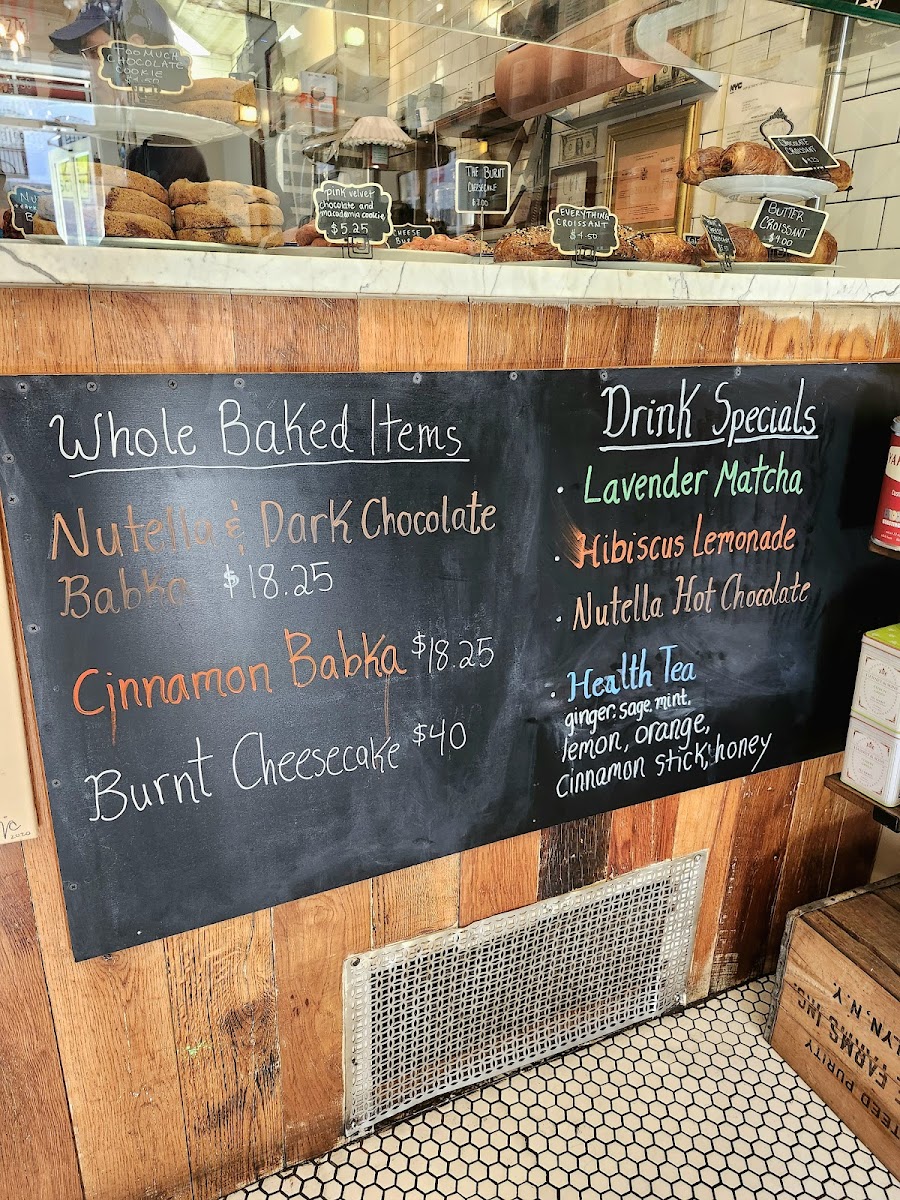 TOO MUCH
CHOCOLATE
COOKIE
pink velvet
chocolate and
macadamia cookie
$5.25
CHEESE
THE BURNT
CHEESECAKE
EVERYTHING
CROISSANT
$4.50
CHOCOLATE
CROISSANT
BUTTER
CROISSANT
$4.00
NYC
Whole Baked Items
Nutella & Dark Chocolate
Babka $18.25
Cinnamon Babka $18.25
Burnt Cheesecake $40
Drink Specials
· Lavender Matcha
· Hibiscus Lemonade
· Nutella Hot Chocolate
· Health Tea
ginger. sage. mint.
lemon, orange,
cinnamon stick, honey
2020
FARMS INC.
LYN, N.Y.
TEED PURITY